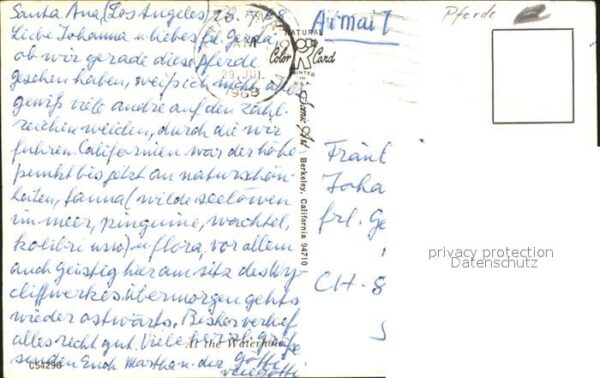 Santa Ana (Los Angeles) 28. 7. 68
Liebe Johanna u liebes frl. Gerda,
ob wir gerade diese pferde
gesehen haben, weiß ich nicht, aber
gewiß viele andre auf den zahl-
reichen weiden, durch die wir
fuhren. Californien war der höhe-
punkt bis jetzt an naturschön-
heiten, fauna (wilde seelöwen
im meer, pinguine, wachtel,
kolibri usw) u flora, vor allem
auch geistig hier am sitz des Wy-
cliffwerkes. übermorgen gehts
wieder ostwärts. Bisher verlief
alles recht gut. Viele herzl. grüße
senden Euch Marthan. der götti
C54290
At the Waterhole
AM
29 JUL
1968
NATURAL
Color Card
PRINTED IN
U.S.A.
Scenic Art
Berkeley, California 94710
Airmail
Pferde
Fräul
Joha
frl. Ge
CH-8
S
privacy protection
Datenschutz